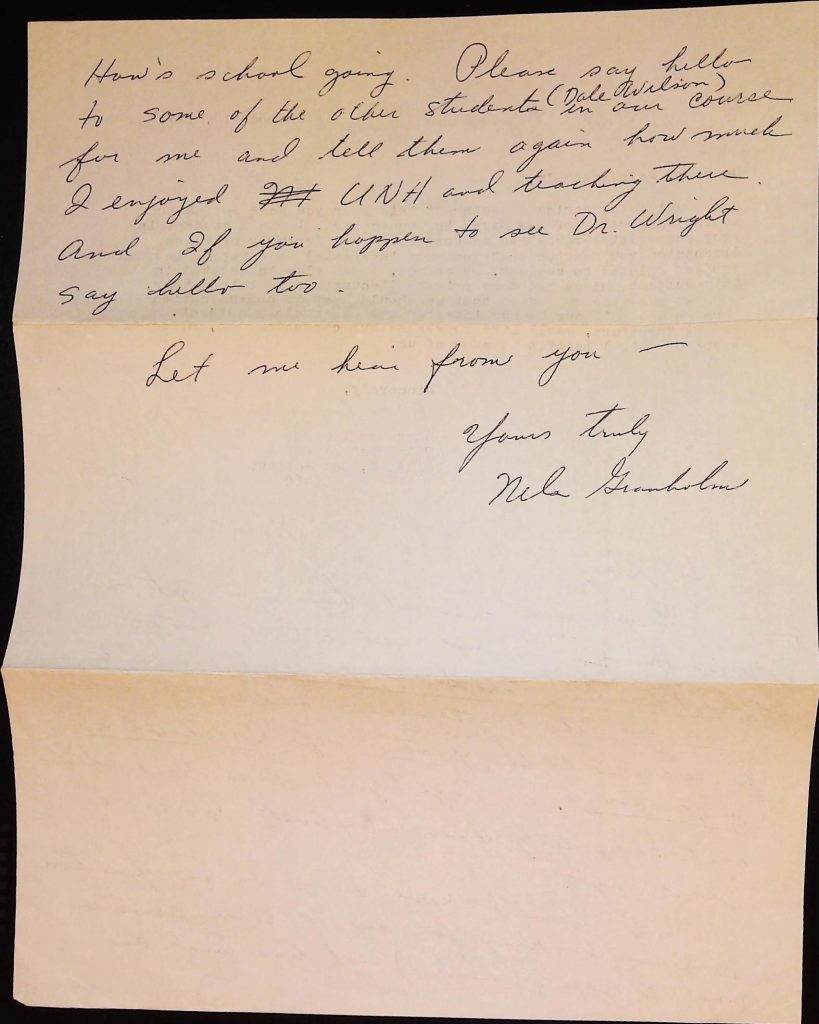 How's school going. Please say hello
to some of the other students (Dale Wilson) in our course
for me and tell them again how much
I enjoyed UNH and teaching there.
And If you happen to see Dr. Wright
say hello too.
Let me hear from you —
Yours truly
Nels Granholm